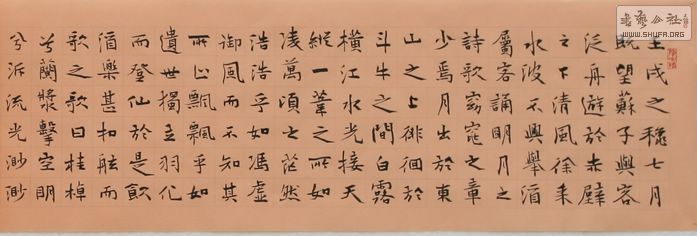 壬戌之穐七月
既望蘇子與客
泛舟遊於赤壁
之下清風徐来
水波不興舉酒
屬客誦明月之
詩歌窈窕之章
少焉月出於東
山之上徘徊於
斗牛之間白露
橫江水光接天
縱一葦之所如
凌萬頃之茫然
浩浩乎如馮虛
御風而不知其
所止飄飄乎如
遺世獨立羽化
而登仙於是飲
酒樂甚扣舷而
歌之歌曰桂棹
兮蘭槳擊空明
兮泝流光渺渺
書藝公社
WWW.SHUFA.ORG